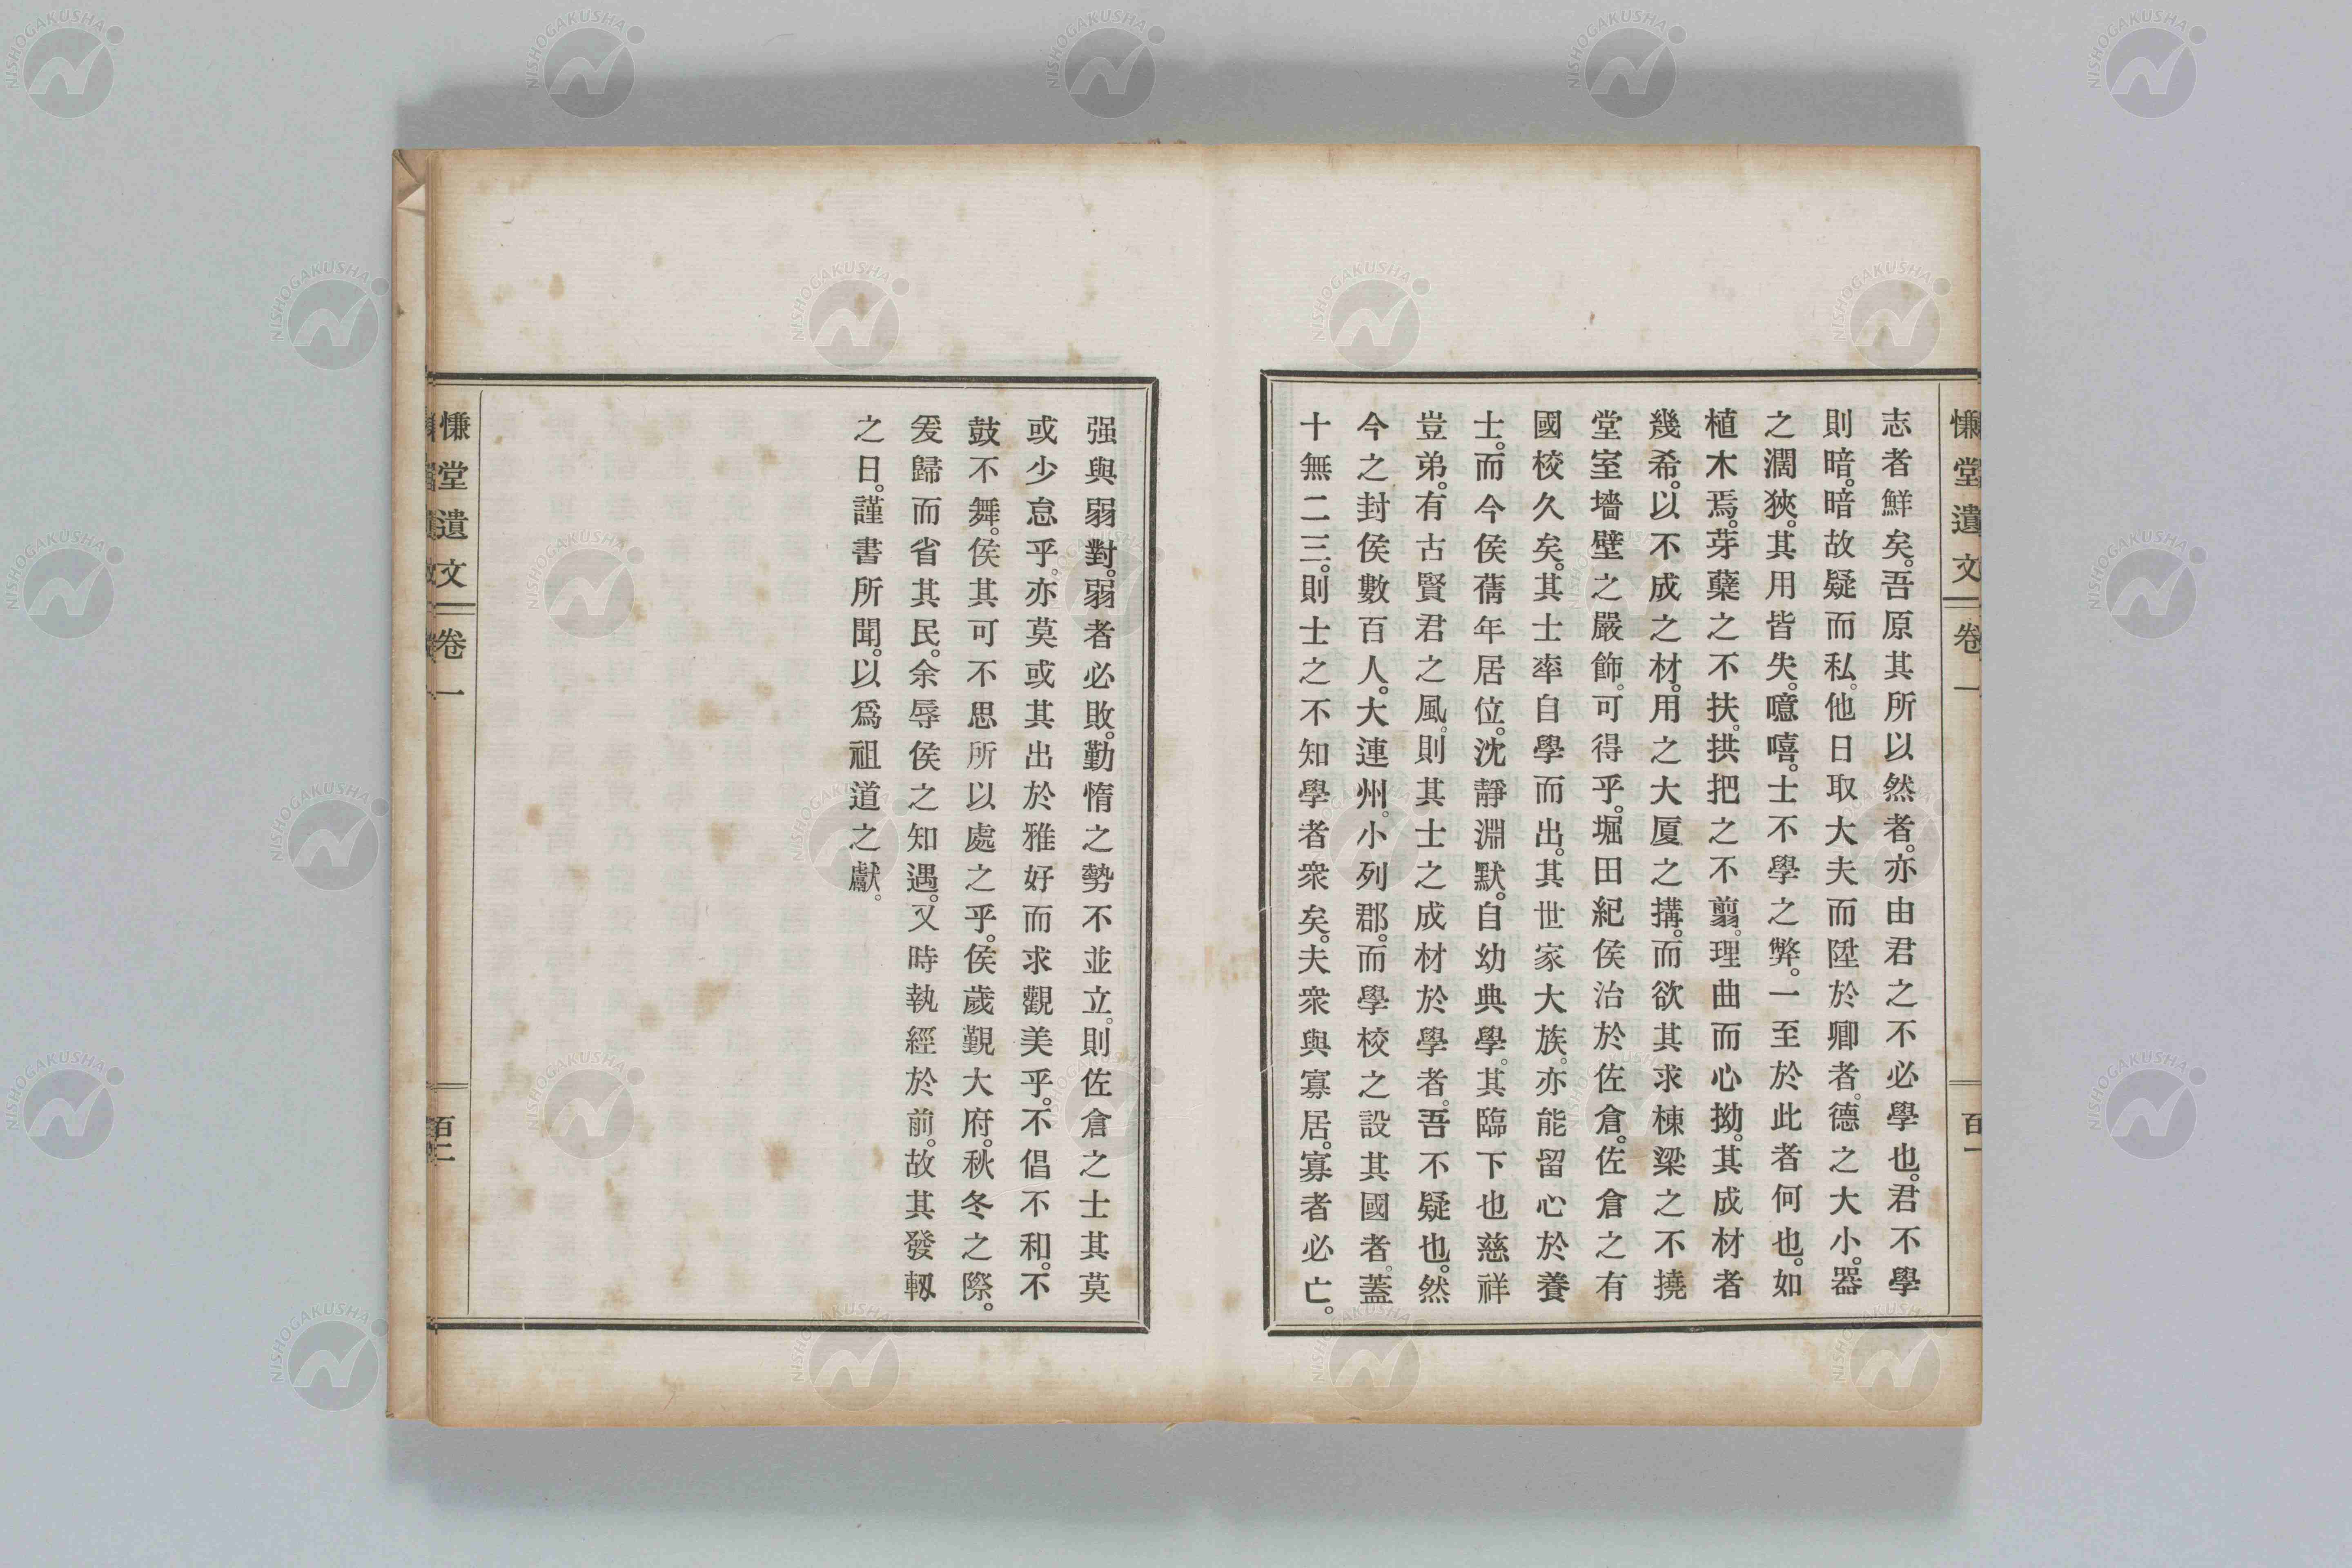 慊堂遺文 卷一 百一
志者鮮矣。吾原其所以然者。亦由君之不必學也。君不學
則暗。暗故疑而私。他日取大夫而陞於卿者。德之大小。器
之濶狹。其用皆失。噫嘻。士不學之弊。一至於此者何也。如
植木焉。芽蘗之不扶。拱把之不翦。理曲而心拗。其成材者
幾希。以不成之材。用之大厦之搆。而欲其求棟梁之不撓
堂室墻壁之嚴飾。可得乎。堀田紀侯治於佐倉。佐倉之有
國校久矣。其士率自學而出。其世家大族。亦能留心於養
士。而今侯蓿年居位。沈靜淵默。自幼典學。其臨下也慈祥
豈弟。有古賢君之風。則其士之成材於學者。吾不疑也。然
今之封侯數百人。大連州。小列郡。而學校之設其國者。蓋
十無二三。則士之不知學者衆矣。夫衆與寡居。寡者必亡。
强與弱對。弱者必敗。勤惰之勢不並立。則佐倉之士其莫
或少怠乎。亦莫或其出於雅好而求觀美乎。不倡不和。不
鼓不舞。侯其可不思所以處之乎。侯歲覲大府。秋冬之際。
爰歸而省其民。余辱侯之知遇。又時執經於前。故其發軔
之日。謹書所聞。以爲祖道之獻。
慊堂遺文 卷一 百二
NISHOGAKUSHA